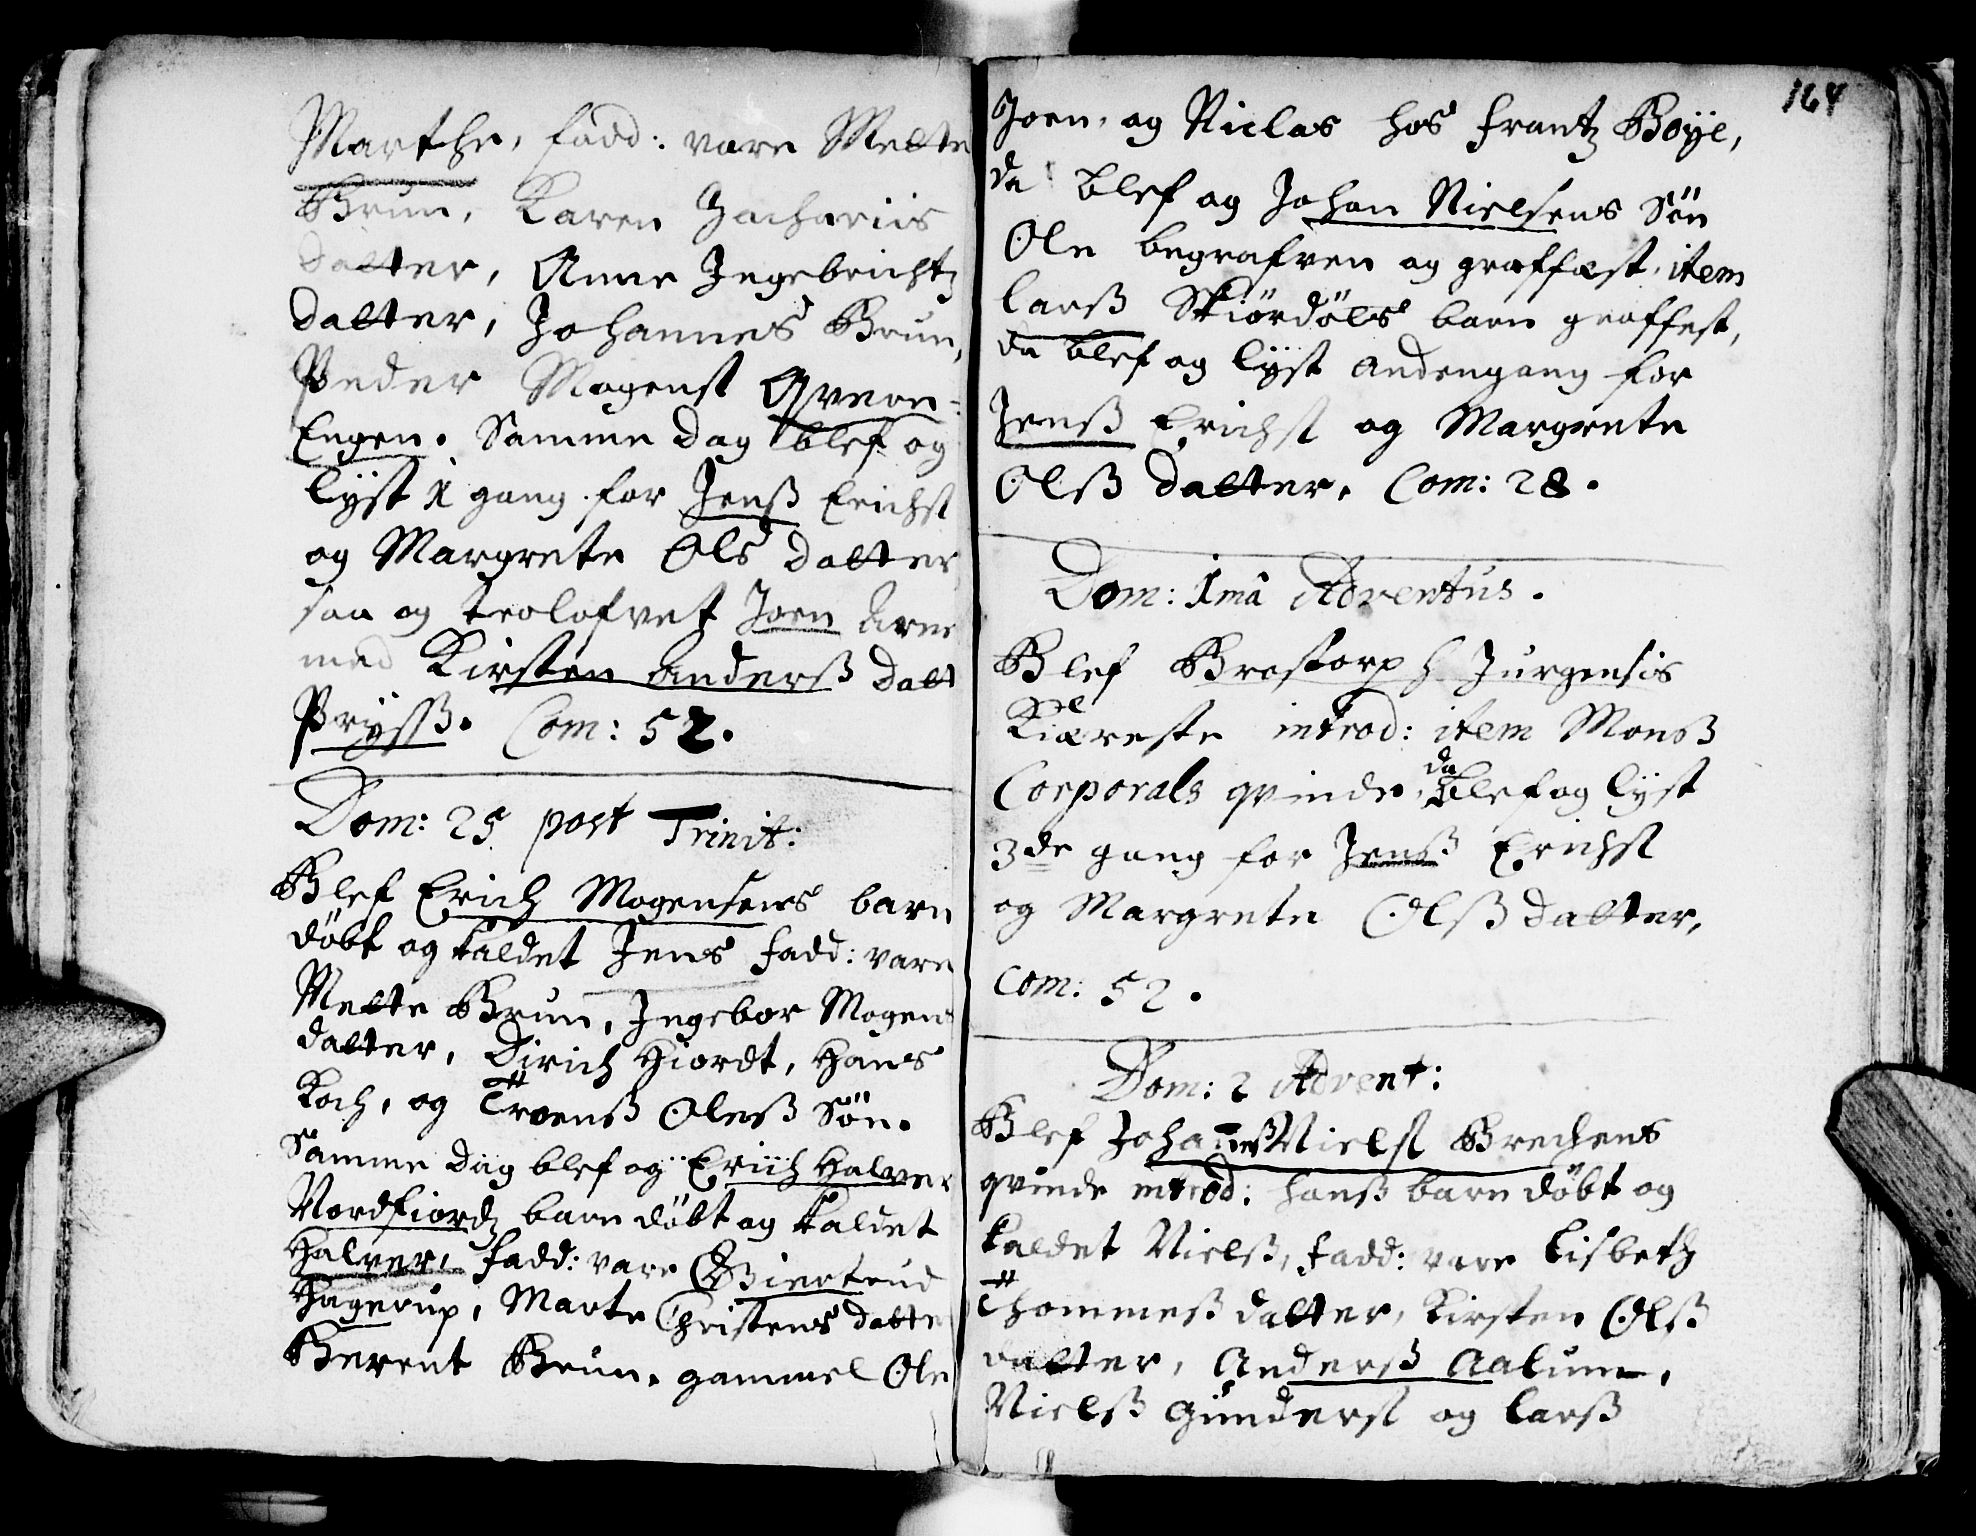 Marthe, fadd: vare Mette
Brun, Karen Zachariis
datter, Anne Ingebrichtz
datter, Johannes Brun,
Peder Mogenst Qvern-
Engen. Samme dag blef og
lyst 1 gang for Jenß Erichst
og Margrete Ols datter
saa og trolofvet Joen Arne
med Kirsten Anderß datt
Prysß. Com: 52.
Dom: 25 post Trinit:
Blef Erich Mogensens barn
döbt og kaldet Jens fadd: vare
Mette Brun, Ingebor Mogens
datter, Dirich Hiordt, Hans
Koch, og Troenß Oleß Sön.
Samme dag blef og Erich Halver
Nordfiordz barn döbt og kaldet
Halver, fadd: vare Giertrud
Hagerup, Marte Christens datte
Berent Brun, gammel Ole
164
Joen, og Niclas hos Frantz Boye,
da blef og Johan Nielsens Sön
Ole begrafven og graffæst, item
Larß Skiördöls barn graffest,
da blef og lyst andengang for
Jenß Erichst og Margrete
Olß datter. Com: 28.
Dom: 1mâ Adventus.
Blef Brostorph Jurgensis
Kiæreste introd: item Monß
Corporals qvinde, da blef og lyst
3de gang for Jenß Erichst
og Margrete Olß datter,
Com: 52.
Dom: 2 Advent:
Blef Johaneß Nielst Brechens
qvinde introd: hanß barn döbt og
kaldet Nielß, fadd: vare Lisbeth
Thommeß datter, Kirsten Olß
datter, Anderß Aalum,
Nielß Gunderst og Larß